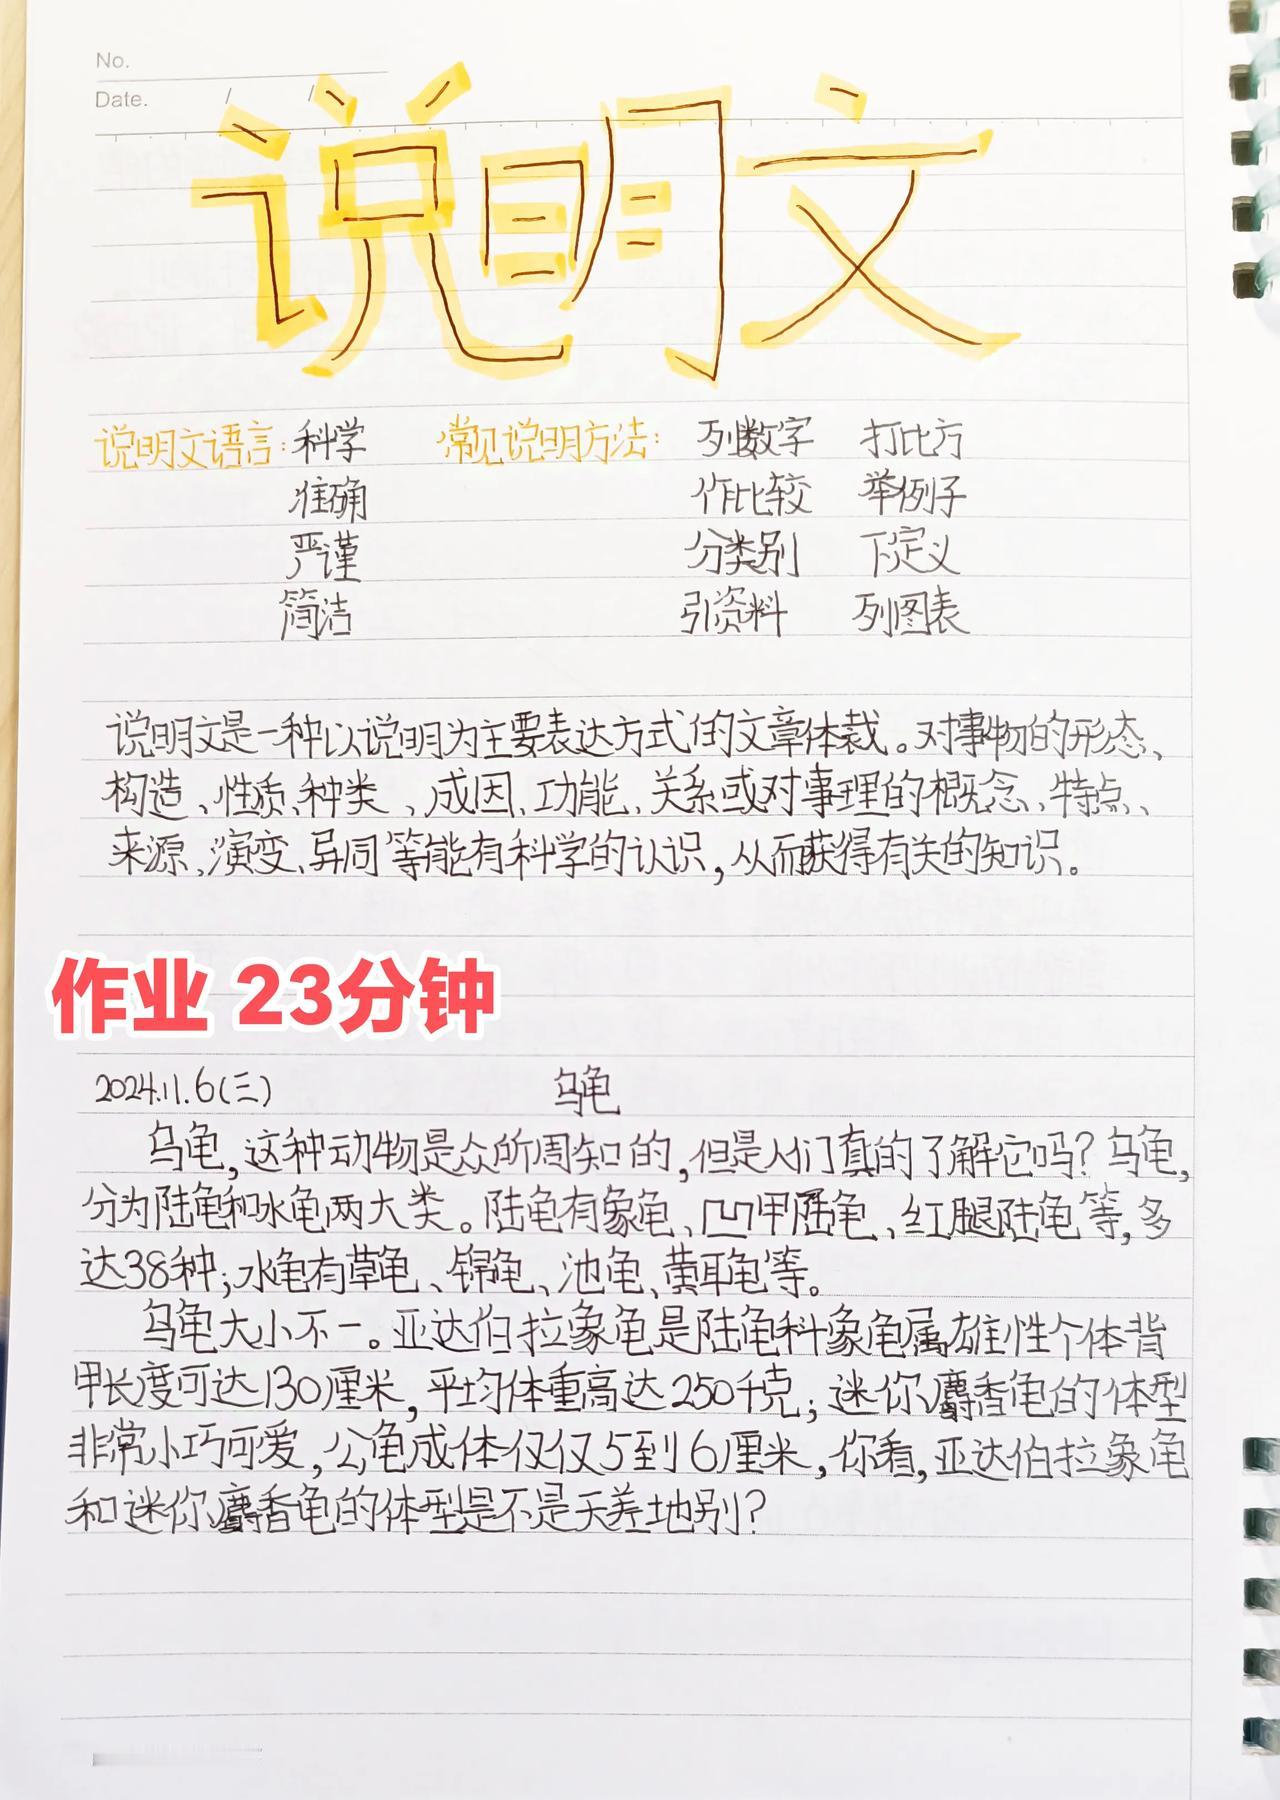 No.
Date. / /
说明文
说明文语言：科学 常见说明方法： 列数字 打比方
准确 作比较 举例子
严谨 分类别 下定义
简洁 引资料 列图表
说明文是一种以说明为主要表达方式的文章体裁。对事物的形态、
构造、性质、种类、成因、功能、关系或对事理的概念、特点、
来源、演变、异同等能有科学的认识，从而获得有关的知识。
作业 23分钟
2024.11.6(三) 乌龟
乌龟，这种动物是众所周知的，但是人们真的了解它吗？乌龟，
分为陆龟和水龟两大类。陆龟有象龟、凹甲陆龟、红腿陆龟等，多
达38种；水龟有草龟、锦龟、池龟、黄耳龟等。
乌龟大小不一。亚达伯拉象龟是陆龟科象龟属雄性个体背
甲长度可达130厘米，平均体重高达250千克；迷你麝香龟的体型
非常小巧可爱，公龟成体仅仅5到6厘米，你看，亚达伯拉象龟
和迷你麝香龟的体型是不是天差地别？